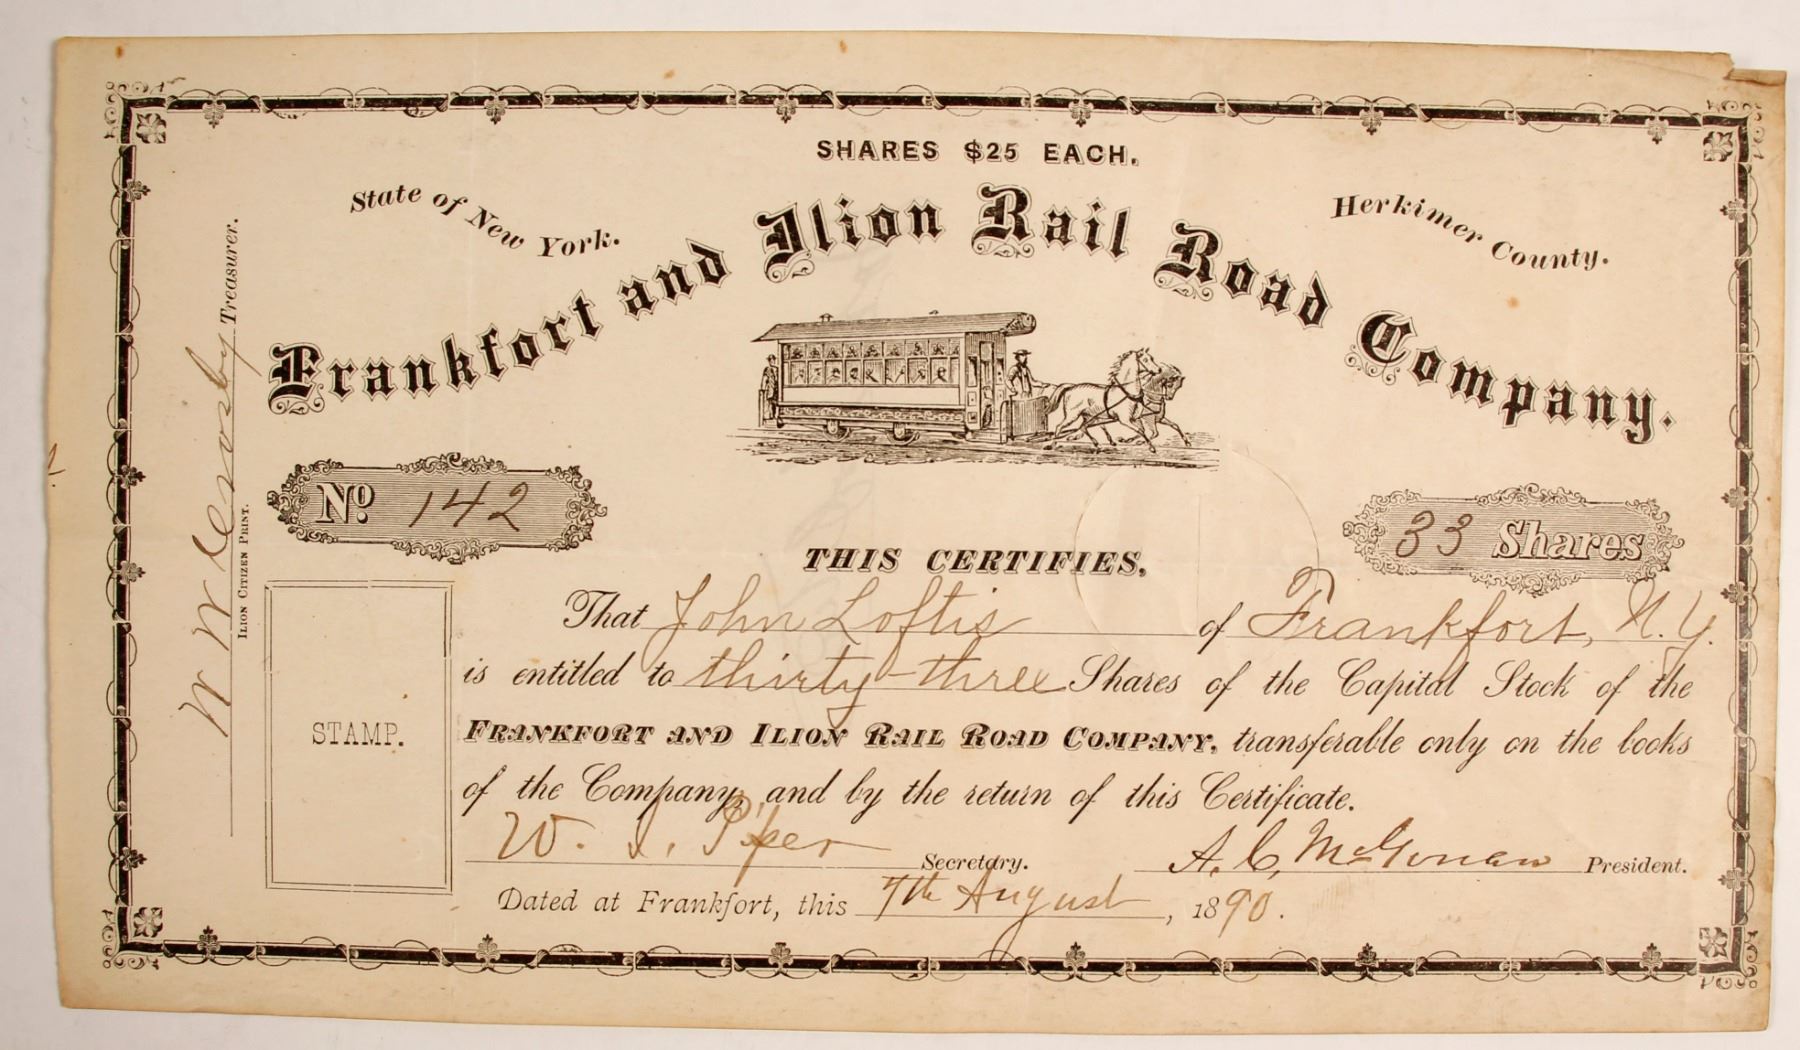 SHARES $25 EACH.
State of New York.
Herkimer County.
Frankfort and Ilion Rail Road Company.
No. 142
33 Shares
THIS CERTIFIES,
That John Loftis of Frankfort, N.Y.
is entitled to thirty-three Shares of the Capital Stock of the
FRANKFORT AND ILION RAIL ROAD COMPANY, transferable only on the books
of the Company, and by the return of this Certificate.
W. I. Piper Secretary. A. C. McGowan President.
Dated at Frankfort, this 7th August, 1890.
STAMP.
W W Crosby Treasurer.
ILION CITIZEN PRINT.